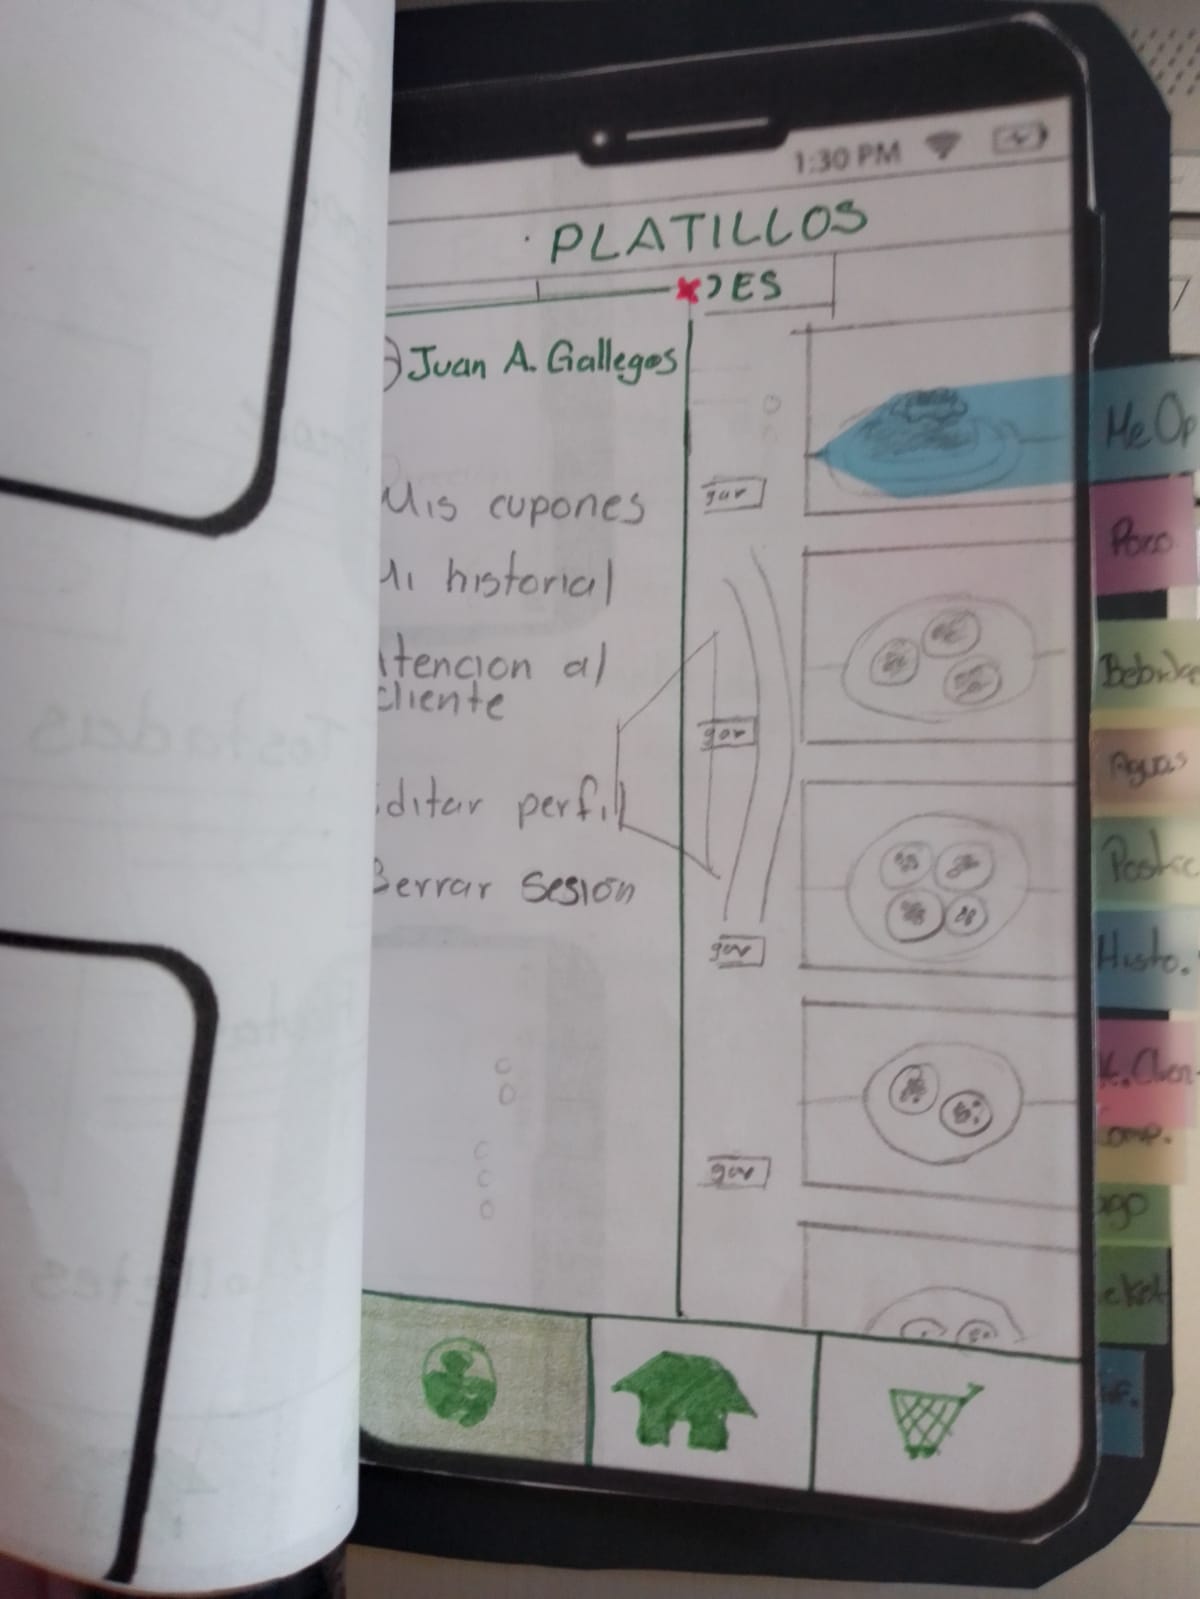 1:30 PM
PLATILLOS
DES
Juan A. Gallegos
Mis cupones
Mi historial
Atencion al
cliente
Editar perfil
Serrar Sesión
gar
gar
gar
gar
Me Op
Pozo
Bebidas
Aguas
Postre
Histo.
t.Clien
omp.
ago
icket